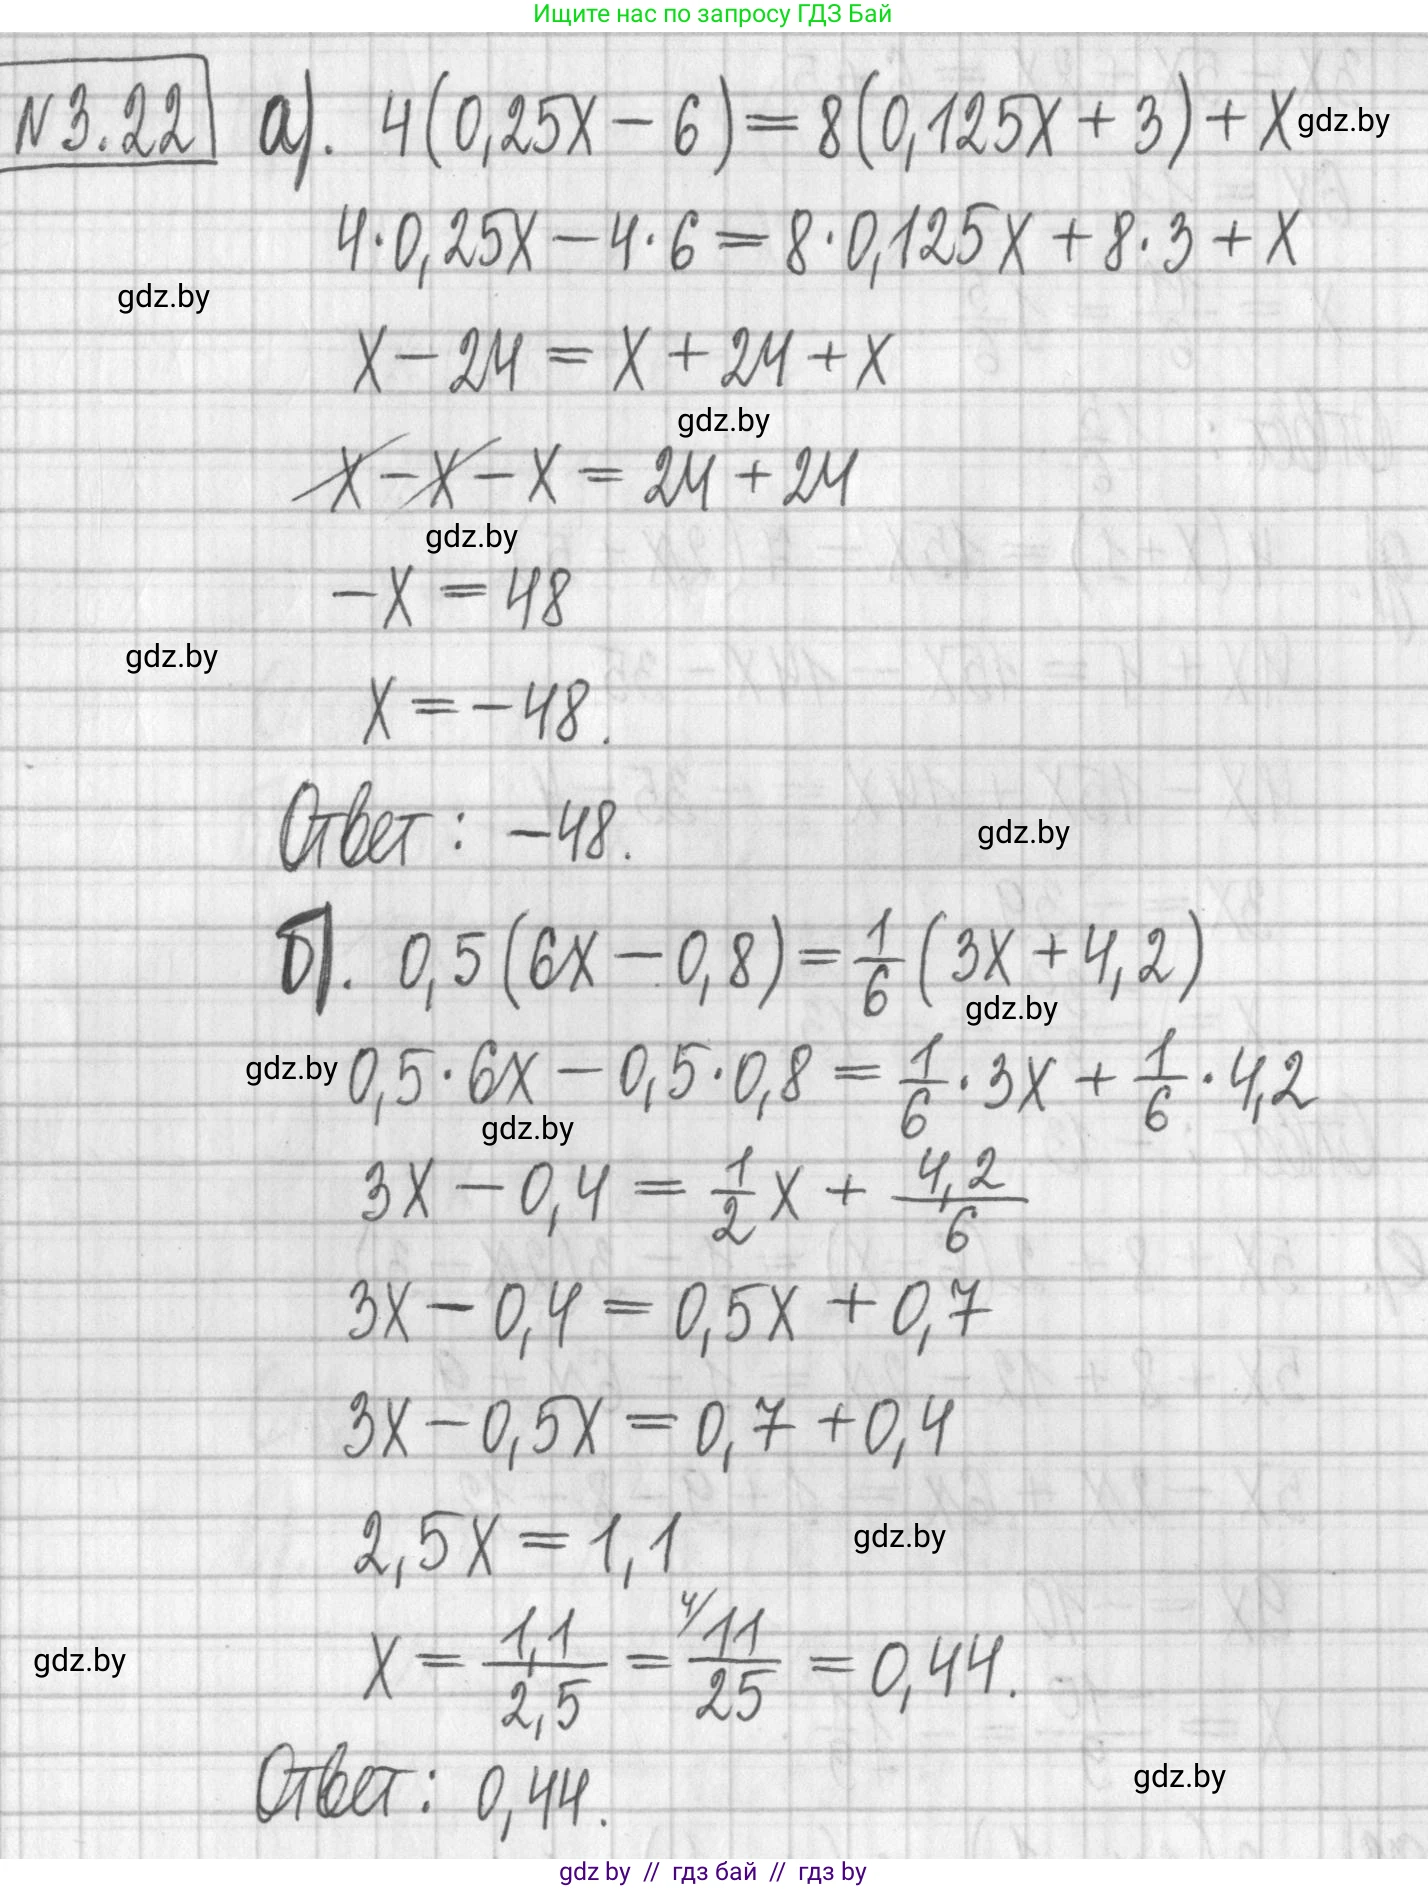 Ищите нас по запросу ГДЗ Бай
N 3.22 а). 4(0,25x − 6) = 8(0,125x + 3) + x gdz.by
4·0,25x − 4·6 = 8·0,125x + 8·3 + x
gdz.by
x − 24 = x + 24 + x
gdz.by
x − x − x = 24 + 24
gdz.by
−x = 48
gdz.by
x = −48.
Ответ: −48.
gdz.by
б). 0,5(6x − 0,8) = 1/6 (3x + 4,2)
gdz.by
gdz.by 0,5·6x − 0,5·0,8 = 1/6·3x + 1/6·4,2
gdz.by
3x − 0,4 = 1/2 x + 4,2/6
3x − 0,4 = 0,5x + 0,7
3x − 0,5x = 0,7 + 0,4
2,5x = 1,1
gdz.by
gdz.by x = 1,1/2,5 = 4/ 11/25 = 0,44.
gdz.by
Ответ: 0,44.
gdz by // гдз бай // гдз by